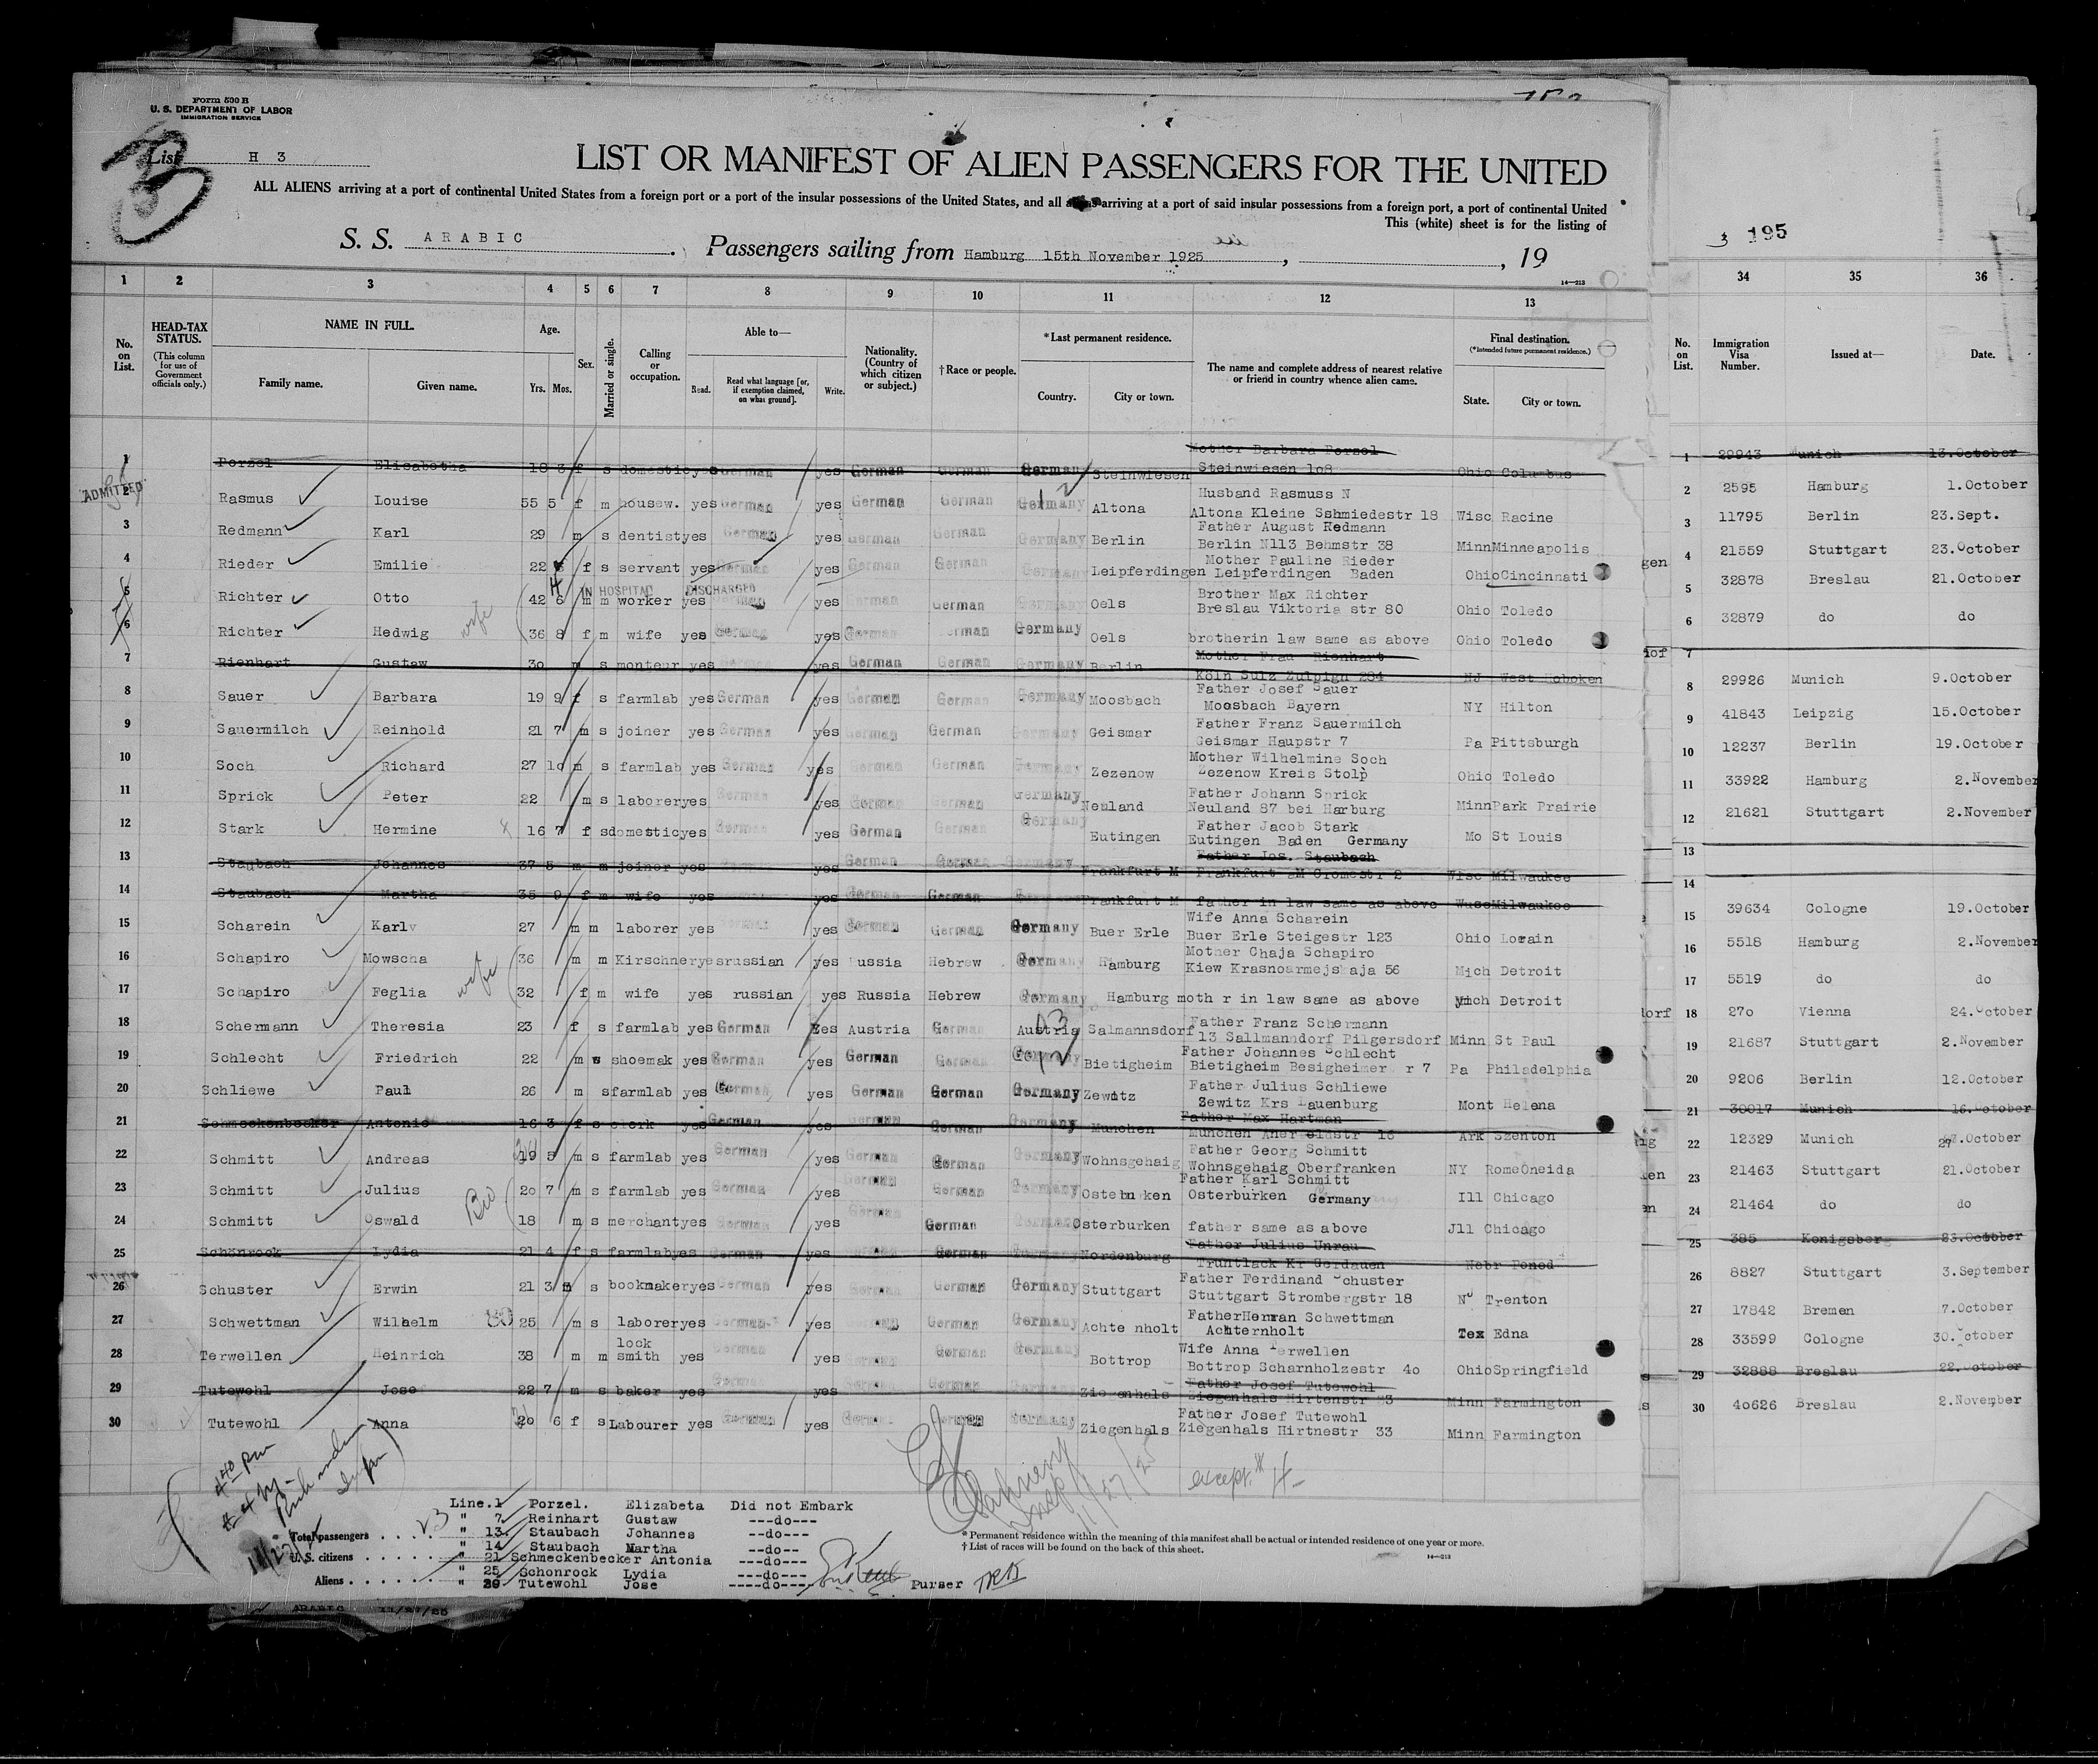 Form 500 B
U. S. DEPARTMENT OF LABOR
IMMIGRATION SERVICE
3
List H 3
LIST OR MANIFEST OF ALIEN PASSENGERS FOR THE UNITED
ALL ALIENS arriving at a port of continental United States from a foreign port or a port of the insular possessions of the United States, and all aliens arriving at a port of said insular possessions from a foreign port, a port of continental United
This (white) sheet is for the listing of
S. S. ARABIC . Passengers sailing from Hamburg 15th November 1925 , , 19
3 195
14—213
1 2 3 4 5 6 7 8 9 10 11 12 13 34 35 36
No. on List. HEAD-TAX STATUS. (This column for use of Government officials only.) NAME IN FULL. Family name. Given name. Age. Yrs. Mos. Sex. Married or single. Calling or occupation. Able to— Read. Read what language [or, if exemption claimed, on what ground]. Write. Nationality. (Country of which citizen or subject.) †Race or people. *Last permanent residence. Country. City or town. The name and complete address of nearest relative or friend in country whence alien came. Final destination. (*Intended future permanent residence.) State. City or town. No. on List. Immigration Visa Number. Issued at— Date.
Mother Barbara Porzel
1 Porzel Elisabetha 18 3 f s domestic yes German yes German German Germany Steinwiesen Steinwiesen 108 Ohio Columbus 1 29943 Munich 13.October
ADMITTED
Husband Rasmuss N
2 Rasmus Louise 55 5 f m housew. yes German yes German German Germany Altona Altona Kleine Sshmiedestr 18 Wisc Racine 2 2595 Hamburg 1.October
Father August Redmann
3 Redmann Karl 29 m s dentist yes German yes German German Germany Berlin Berlin N113 Behmstr 38 Minn Minneapolis 3 11795 Berlin 23.Sept.
Mother Pauline Rieder
4 Rieder Emilie 22 f s servant yes German yes German German Germany Leipferdingen Leipferdingen Baden Ohio Cincinnati gen 4 21559 Stuttgart 23.October
IN HOSPITAL DISCHARGED
Brother Max Richter
5 Richter Otto 42 6 m m worker yes German yes German German Germany Oels Breslau Viktoria str 80 Ohio Toledo 5 32878 Breslau 21.October
6 Richter Hedwig wife 36 8 f m wife yes German yes German German Germany Oels brotherin law same as above Ohio Toledo 6 32879 do do
Mother Frau Rienhart
7 Rienhart Gustaw 30 m s monteur yes German yes German German Germany Berlin Köln Sulz Zulpign 284 NJ West Hoboken 7
Father Josef Sauer
8 Sauer Barbara 19 9 f s farmlab yes German yes German German Germany Moosbach Moosbach Bayern NY Hilton 8 29926 Munich 9.October
Father Franz Sauermilch
9 Sauermilch Reinhold 21 7 m s joiner yes German yes German German Germany Geismar Geismar Haupstr 7 Pa Pittsburgh 9 41843 Leipzig 15.October
Mother Wilhelmine Soch
10 Soch Richard 27 10 m s farmlab yes German yes German German Germany Zezenow Zezenow Kreis Stolp Ohio Toledo 10 12237 Berlin 19.October
Father Johann Sprick
11 Sprick Peter 22 m s laborer yes German yes German German Germany Neuland Neuland 87 bei Harburg Minn Park Prairie 11 33922 Hamburg 2.November
Father Jacob Stark
12 Stark Hermine 16 7 f s domestic yes yes German German Germany Eutingen Eutingen Baden Germany Mo St Louis 12 21621 Stuttgart 2.November
Father Jos. Staubach
13 Staubach Johannes 37 5 m m joiner yes yes German German Germany Frankfurt M Frankfurt aM Cromestr 2 Wisc Milwaukee 13
14 Staubach Martha 35 9 f m wife yes yes German German Frankfurt M father in law same as above Wusc Milwaukee 14
Wife Anna Scharein
15 Scharein Karl 27 m m laborer yes yes German German Germany Buer Erle Buer Erle Steigestr 123 Ohio Lorain 15 39634 Cologne 19.October
Mother Chaja Schapiro
16 Schapiro Mowscha 36 m m Kirschner yes russian yes Russia Hebrew Germany Hamburg Kiew Krasnoarmejskaja 56 Mich Detroit 16 5518 Hamburg 2.November
17 Schapiro Feglia wife 32 f m wife yes russian yes Russia Hebrew Germany Hamburg moth r in law same as above Mich Detroit 17 5519 do do
Father Franz Schermann
18 Schermann Theresia 23 f s farmlab yes German yes Austria German Austria Salmannsdorf 13 Sallmanndorf Pilgersdorf Minn St Paul dorf 18 270 Vienna 24.October
Father Johannes Schlecht
19 Schlecht Friedrich 22 m s shoemak yes German yes German German Germany Bietigheim Bietigheim Besigheimer r 7 Pa Philadelphia 19 21687 Stuttgart 2.November
Father Julius Schliewe
20 Schliewe Paul 26 m s farmlab yes German yes German German Germany Zewitz Zewitz Krs Lauenburg Mont Helena 20 9206 Berlin 12.October
Father Max Hartman
21 Schmeckenbecker Antonie 16 3 f s clerk yes German yes German German Germany Munchen Munchen Aher eldstr 16 Ark Szenton 21 30017 Munich 16.October
Father Georg Schmitt
22 Schmitt Andreas 19 5 m s farmlab yes German yes German German Germany Wohnsgehaig Wohnsgehaig Oberfranken NY Rome Oneida 22 12329 Munich 27.October
Father Karl Schmitt
23 Schmitt Julius 20 7 m s farmlab yes German yes German German Germany Osterburken Osterburken Germany Ill Chicago 23 21463 Stuttgart 21.October
24 Schmitt Oswald Bro 18 m s merchant yes German yes German German Germany Osterburken father same as above Jll Chicago 24 21464 do do
Father Julius Unrau
25 Schönrock Lydia 21 4 f s farmlab yes German yes German Germany Nordenburg Truntlack Kr Gerdauen Nebr Poned 25 385 Konigsberg 23.October
Father Ferdinand Schuster
26 Schuster Erwin 21 3 m s bookmaker yes German yes German German Germany Stuttgart Stuttgart Strombergstr 18 NJ Trenton 26 8827 Stuttgart 3.September
Father Herman Schwettman
27 Schwettman Wilhelm 25 m s laborer yes German yes German German Germany Achte nholt Achternholt Tex Edna 27 17842 Bremen 7.October
lock Wife Anna Terwellen
28 Terwellen Heinrich 38 m m smith yes German yes German German Germany Bottrop Bottrop Scharnholzestr 40 Ohio Springfield 28 33599 Cologne 30.October
Father Josef Tutewohl
29 Tutewohl Jose 22 7 m s baker yes German yes German German Germany Ziegenhals Ziegenhals Hirtenstr 33 Minn Farmington 29 32888 Breslau 22.October
Father Josef Tutewohl
30 Tutewohl Anna 20 6 f s Labourer yes German yes German German Germany Ziegenhals Ziegenhals Hirtnestr 33 Minn Farmington 30 40626 Breslau 2.November
11/27/25
except # 4
Line.1 Porzel. Elizabeta Did not Embark
" 7 Reinhart Gustaw ---do---
Total passengers . . . . 23 " 13. Staubach Johannes --do---
" 14 Staubach Martha --do--
U. S. citizens . . . . . " 21 Schmeckenbecker Antonia ---do---
" 25 Schonrock Lydia ---do---
Aliens . . . . . " 29 Tutewohl Jose ----do---- Purser
* Permanent residence within the meaning of this manifest shall be actual or intended residence of one year or more.
† List of races will be found on the back of this sheet.
14—213
ARABIC 11/27/25